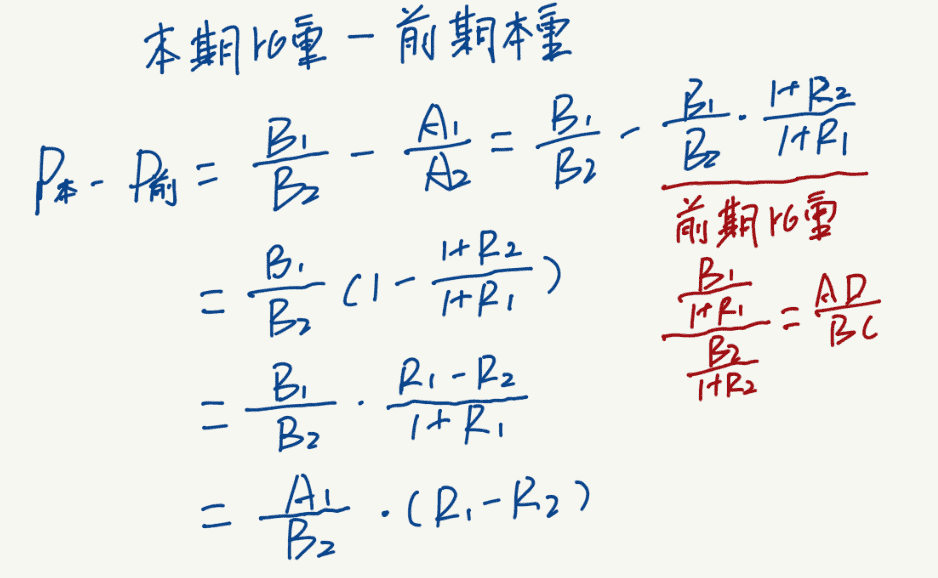 本期比重 - 前期本重
P本 - P前 = B₁/B₂ - A₁/A₂ = B₁/B₂ - B₁/B₂ · (1+R₂)/(1+R₁)
前期比重
= B₁/B₂ (1 - (1+R₂)/(1+R₁))
(B₁/(1+R₁))/(B₂/(1+R₂)) = AD/BC
= B₁/B₂ · (R₁-R₂)/(1+R₁)
= A₁/B₂ · (R₁-R₂)